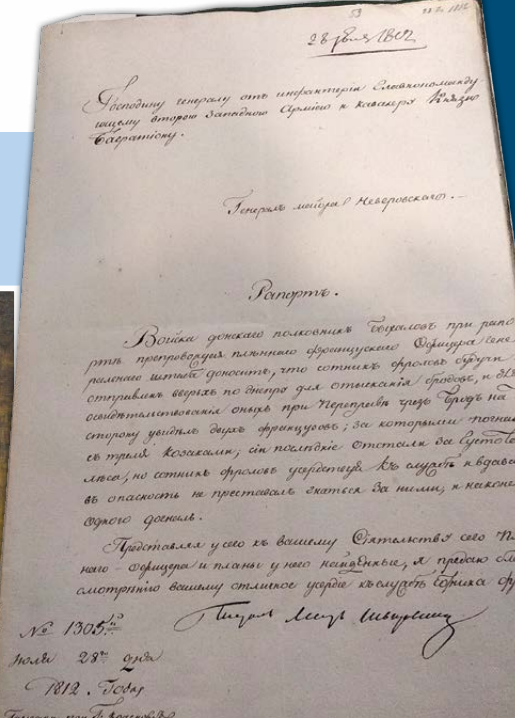 59
28 Июля 1812
Господину генералу отъ инфантеріи Главнокоманду
ющему второю Западною Арміею и кавалеру Князю
Багратіону.
Генералъ маіора Неверовскаго.
Рапортъ.
Войска донскаго полковникъ Быхаловъ при рапо
ртѣ препровождая плѣннаго французскаго Офицера Гене
ральнаго штаба доноситъ, что сотникъ Фроловъ будучи
отправленъ вверхъ по днепру для отысканія бродовъ, и
освидѣтельствованія оныхъ при переправѣ чрезъ бродъ на
сторону увидѣлъ двухъ французовъ; за которыми погнал
съ тремя козаками; сіи послѣдніе отстали за густото
лѣса, но сотникъ Фроловъ усердствуя къ службѣ и вдава
въ опасность не преставалъ гнаться за ними, и наконе
одного догналъ.
Представляя у сего къ вашему Сіятельству сего Пл
наго Офицера и планы у него найденные, я предаю
смотрѣнію вашему отличное усердіе къ службѣ Сотника Фр
№ 1305й
июля 28го дня
1812. Года